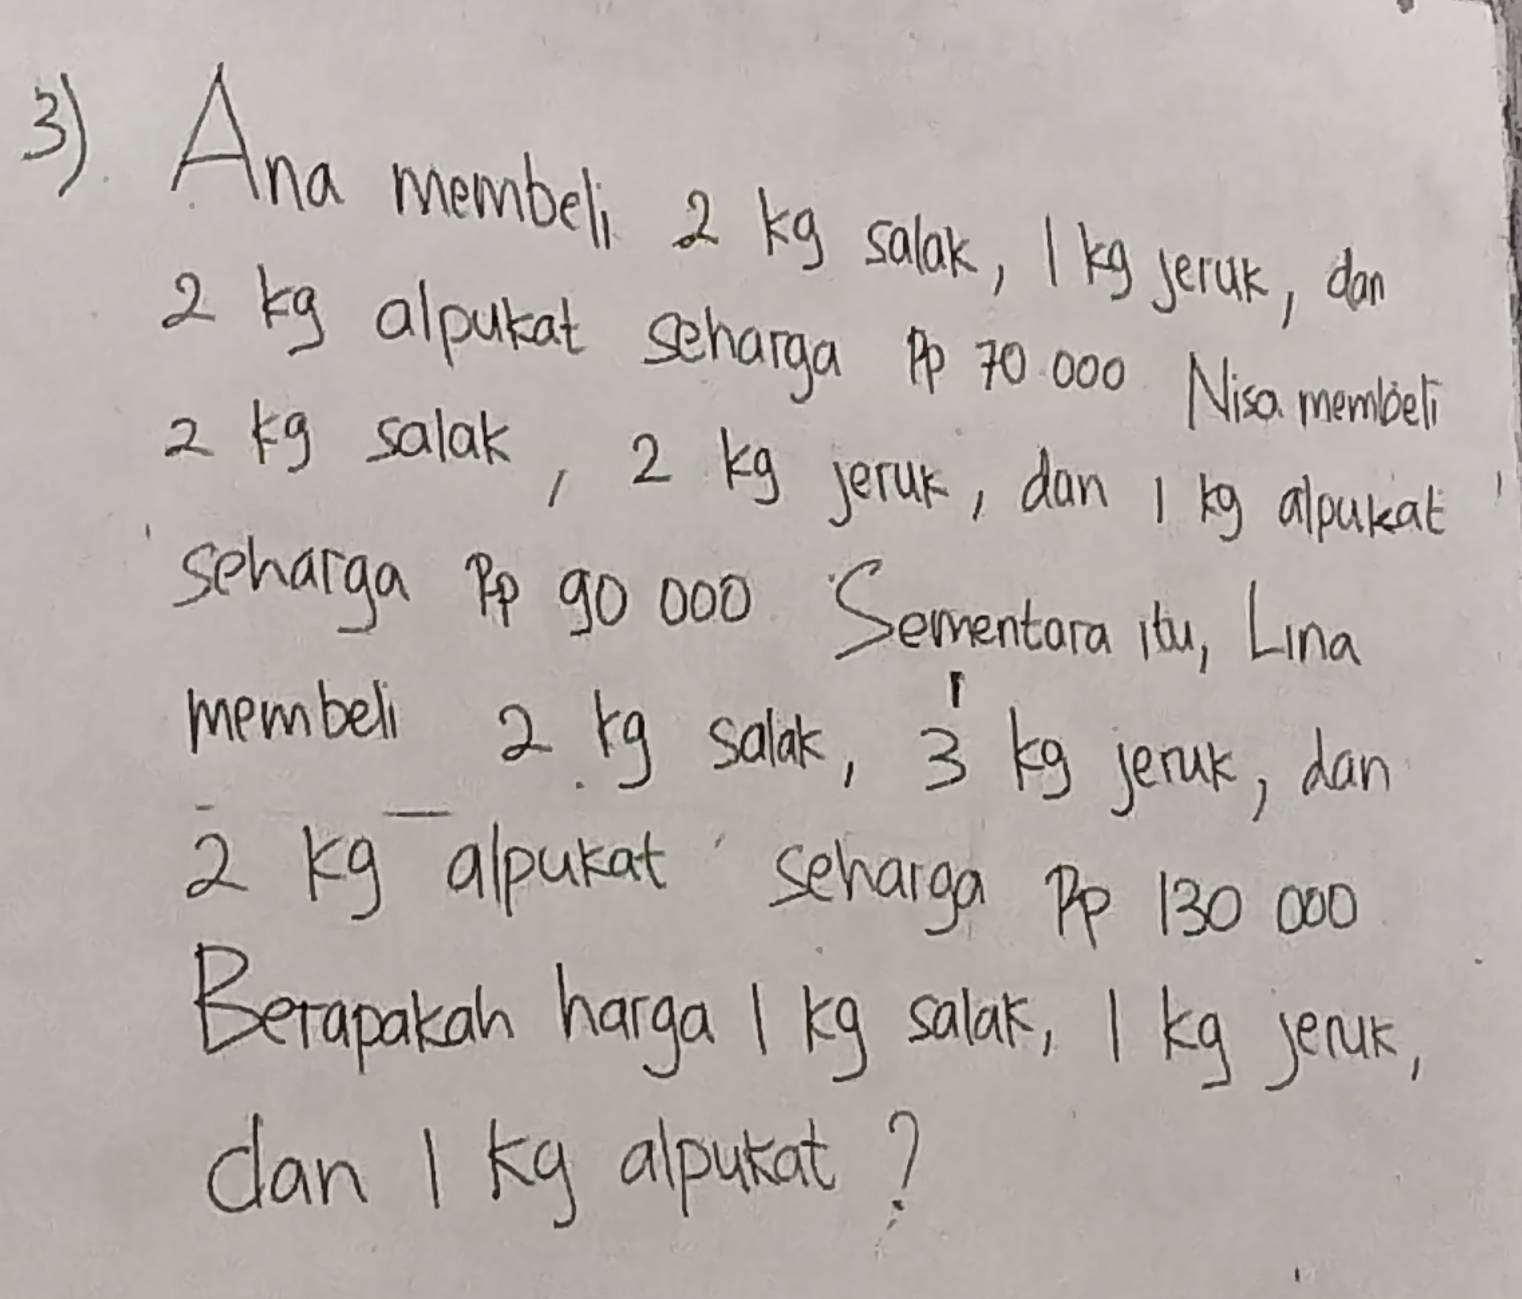 3) Ana membeli 2 kg salak, 1 kg jeruk, dan
2 kg alpukat seharga Rp 70.000 Nisa membeli
2 kg salak, 2 kg jeruk, dan 1 kg alpukat
seharga Rp 90 000 Sementara itu, Lina
membeli 2 kg salak, 3 kg jeruk, dan
2 kg alpukat seharga Rp 130 000
Berapakah harga 1 kg salak, 1 kg jeruk,
dan 1 kg alpukat?